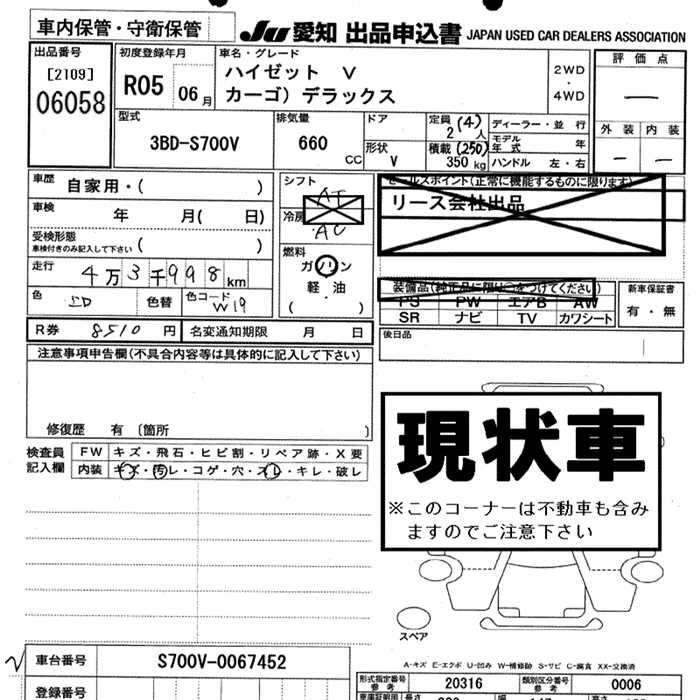 車内保管・守衛保管
JU 愛知 出品申込書 JAPAN USED CAR DEALERS ASSOCIATION
出品番号
[2109]
06058
初度登録年月
R05 06月
車名・グレード
ハイゼット V
カーゴ) デラックス
2WD
・
4WD
評価点
—
外装 内装
— —
型式
3BD-S700V
排気量
660 CC
ドア
形状
V
定員 (4)
2 人
積載 (250)
350 kg
ディーラー・並行
モデル年式 年
ハンドル 左・右
車歴 自家用・( )
車検 年 月( 日)
受検形態
車検付きのみ記入して下さい ( )
走行 4万3千998km
色
色替
色コード W19
シフト AT
冷房 AC
燃料
ガソリン
軽・油
( )
セールスポイント(正常に機能するものに限ります)
リース会社出品
装備品(純正品に限り○をつけてください)
PS PW エアB AW
SR ナビ TV カワシート
新車保証書
有・無
R券 8510 円 名変通知期限 月 日
後日品
注意事項申告欄(不具合内容等は具体的に記入して下さい)
修復歴 有 〔箇所 〕
検査員
記入欄
FW キズ・飛石・ヒビ割・リペア跡・X要
内装 キズ・汚レ・コゲ・穴・スレ・キレ・破レ
現状車
※このコーナーは不動車も含み
ますのでご注意下さい
スペア
A-キズ E-エクボ U-凹み W-補修跡 S-サビ C-腐食 XX-交換済
車台番号 S700V-0067452
登録番号
形式指定番号
参考
20316
類別区分番号
参考
0006